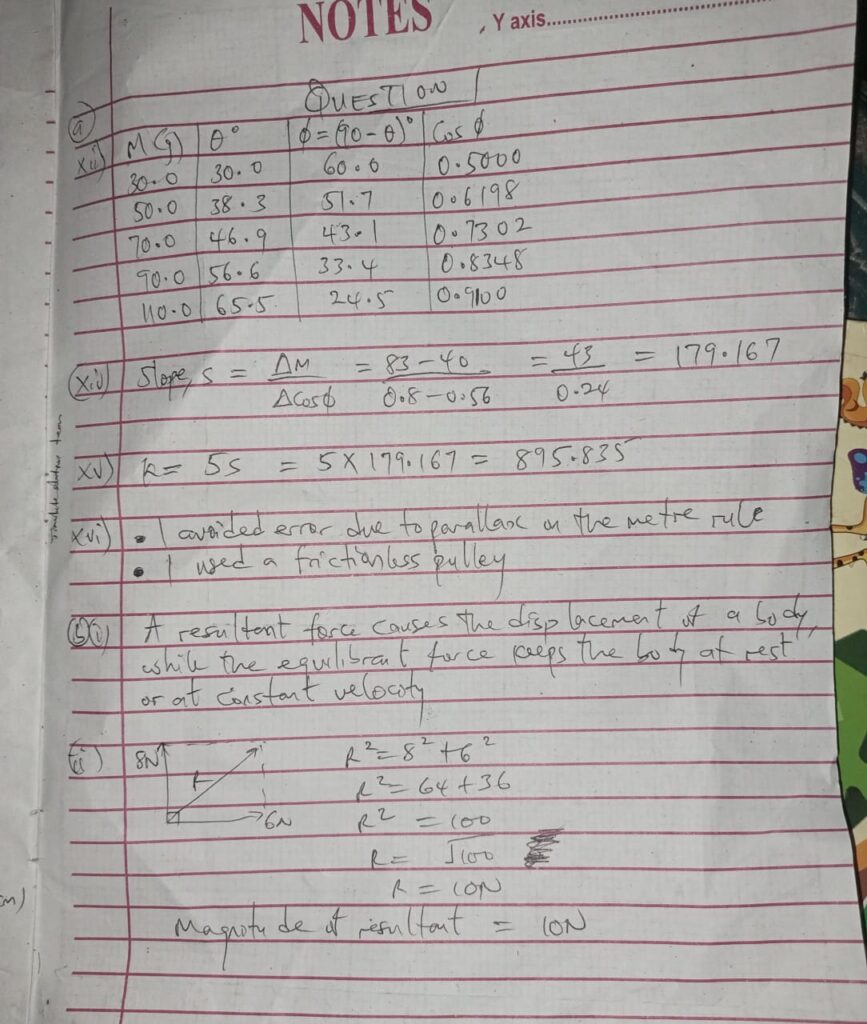 NOTES
, Y axis..............................
QUESTION
(a)
xii) M(g) θ° ϕ=(90-θ)° Cos ϕ
30.0 30.0 60.0 0.5000
50.0 38.3 51.7 0.6198
70.0 46.9 43.1 0.7302
90.0 56.6 33.4 0.8348
110.0 65.5 24.5 0.9100
xiv) Slope, s = ΔM/ΔCosϕ = 83-40/0.8-0.56 = 43/0.24 = 179.167
xv) k= 5s = 5 X 179.167 = 895.835
xvi) • I avoided error due to parallax on the metre rule
• I used a frictionless pulley
(b)(i) A resultant force causes the displacement of a body,
while the equilibrant force keeps the body at rest
or at constant velocity
(ii) 8N R R²=8²+6²
R²=64+36
6N R² =100
R= √100
R = 10N
Magnitude of resultant = 10N